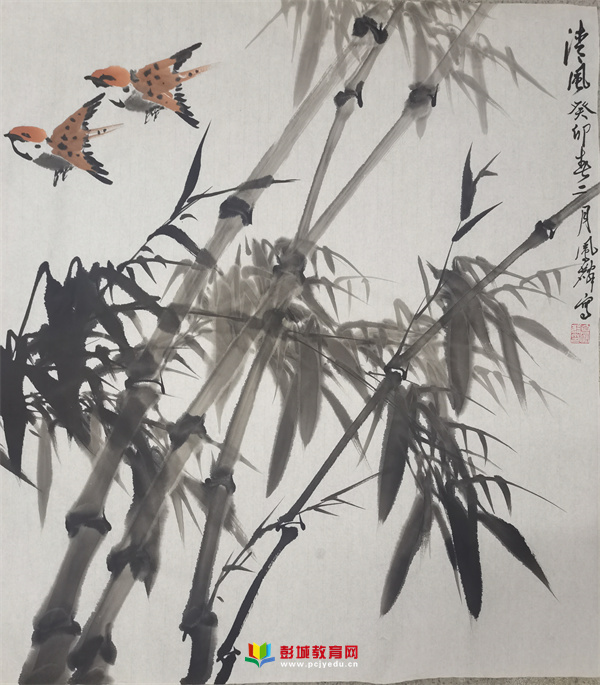 清风癸卯春二月凤麟写
彭城教育网
www.pcjyedu.cn